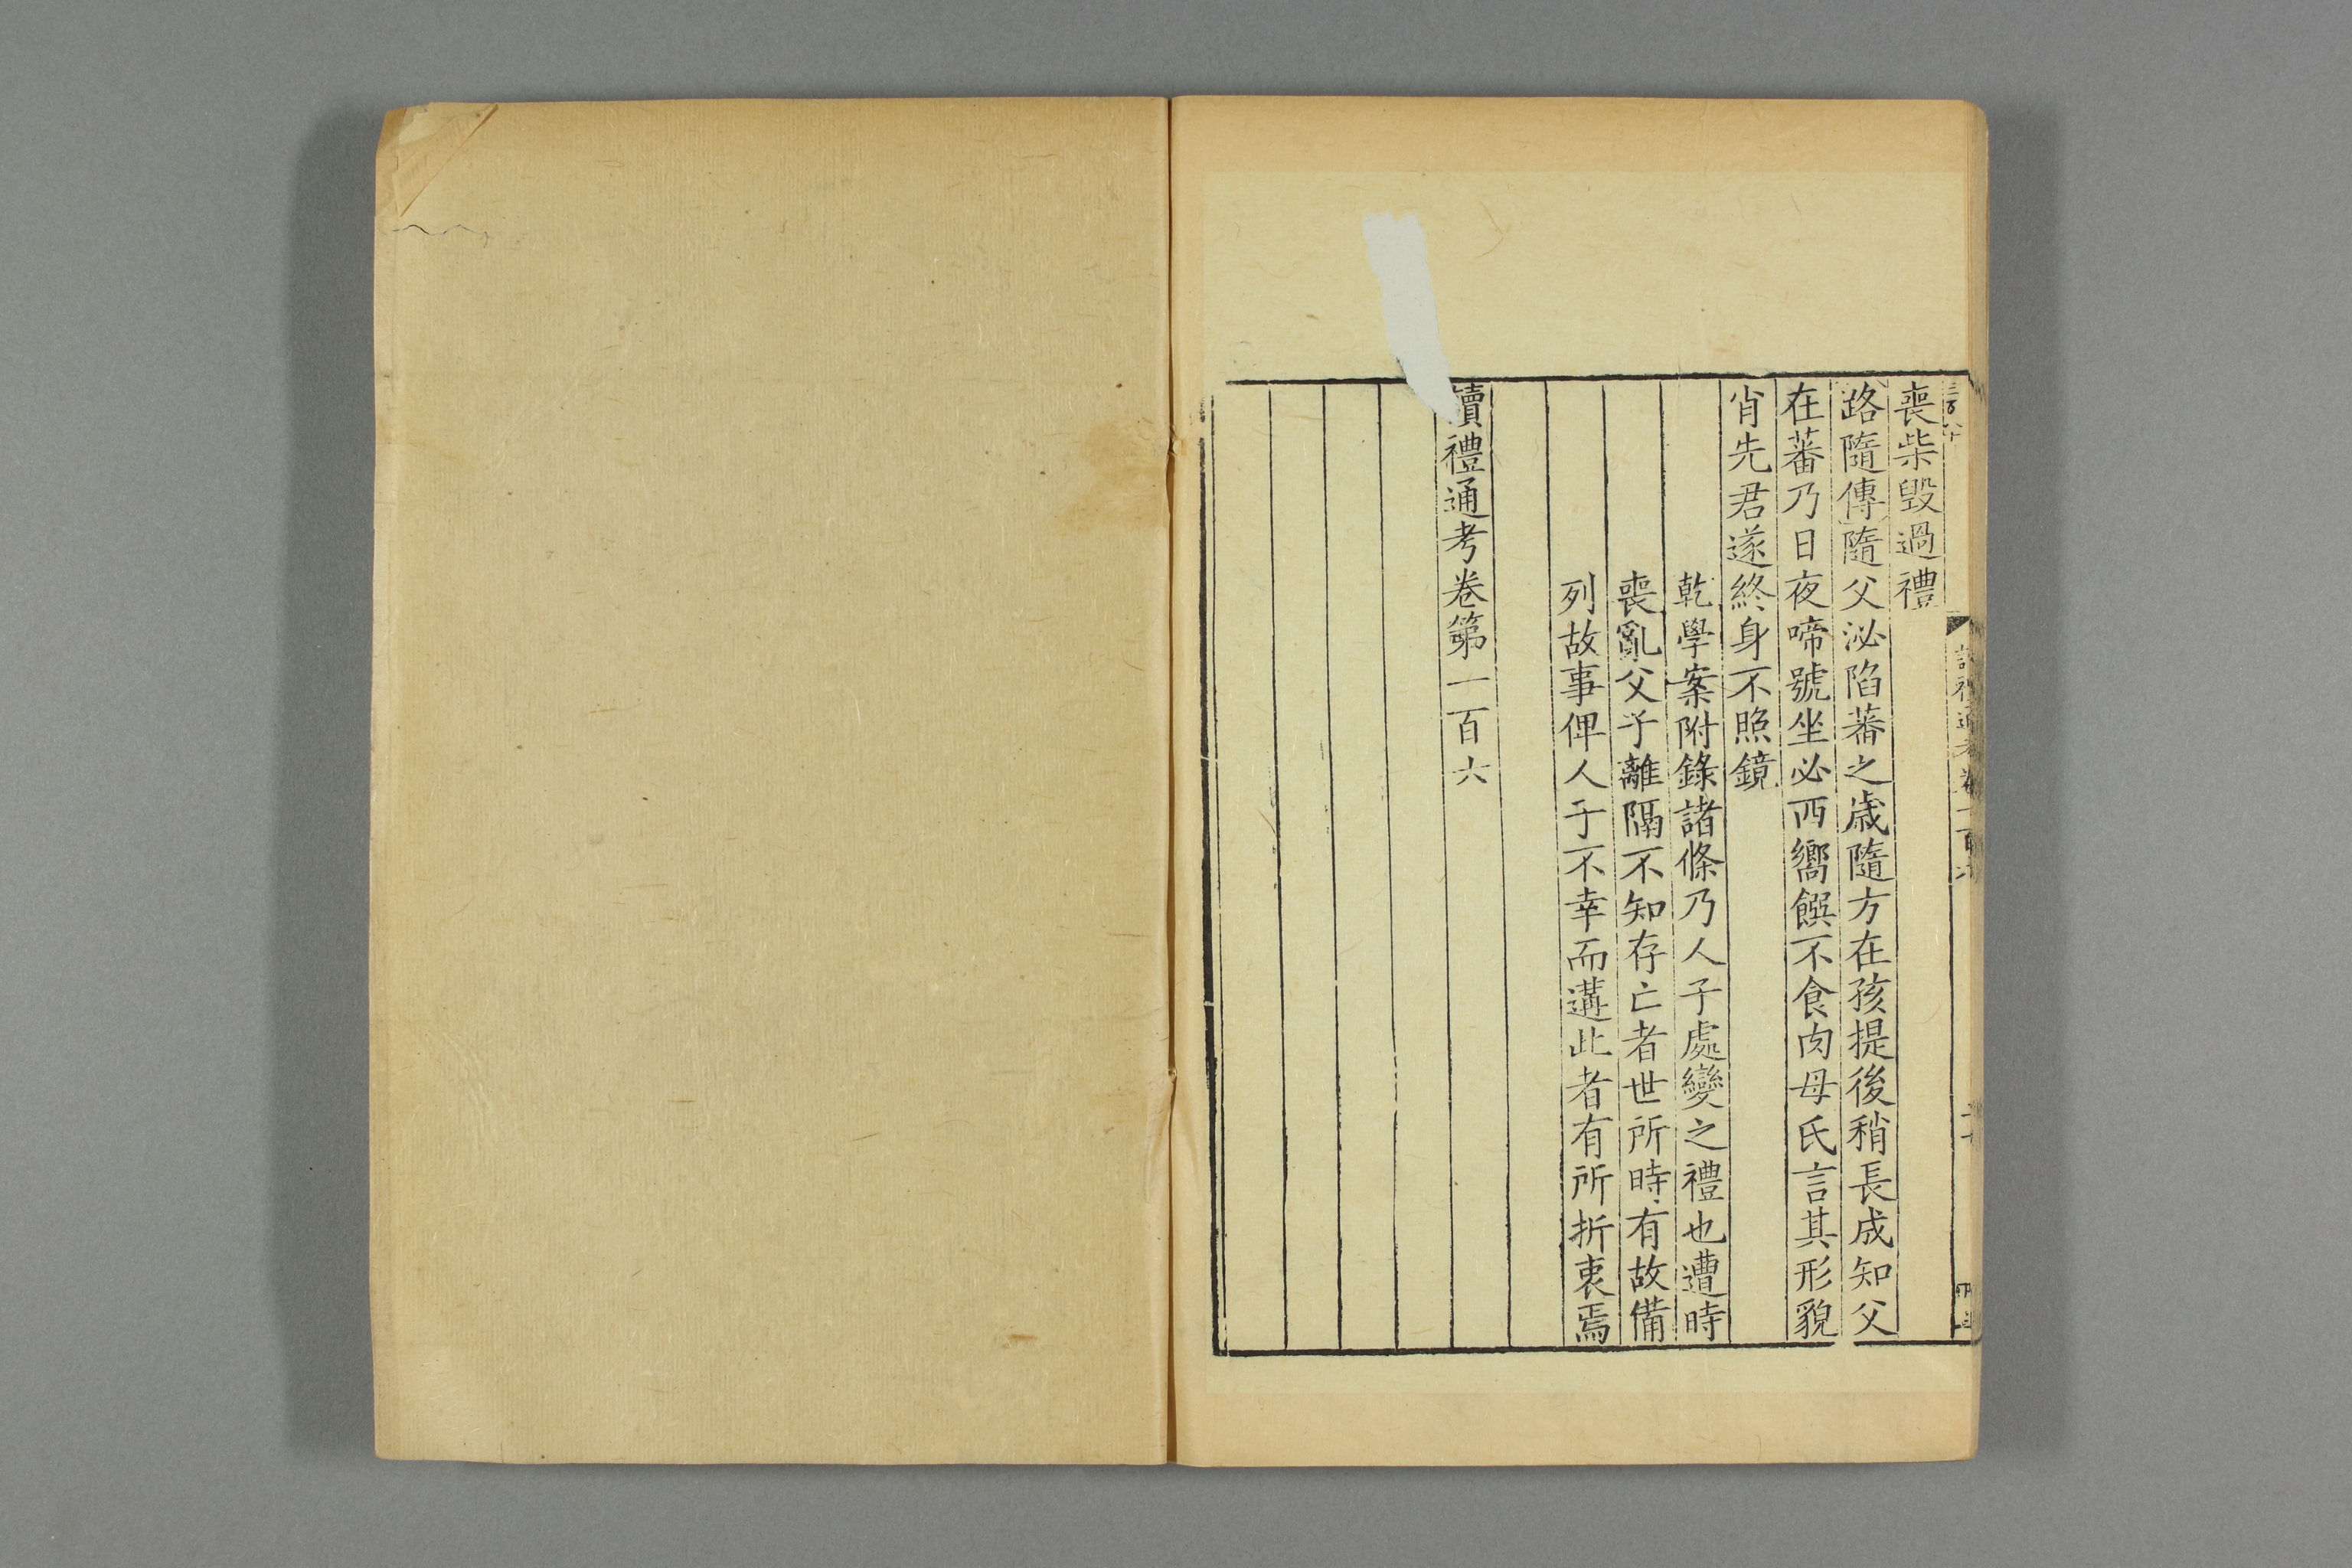 喪柴毁過禮
路隨傳隨父泌陷蕃之歳隨方在孩提後稍長成知父
在蕃乃日夜啼號坐必西嚮饌不食肉母氏言其形貌
肖先君遂終身不照鏡
乾學案附錄諸條乃人子處變之禮也遭時
喪亂父子離隔不知存亡者世所時有故備
列故事俾人于不幸而遘此者有所折衷焉
讀禮通考卷第一百六